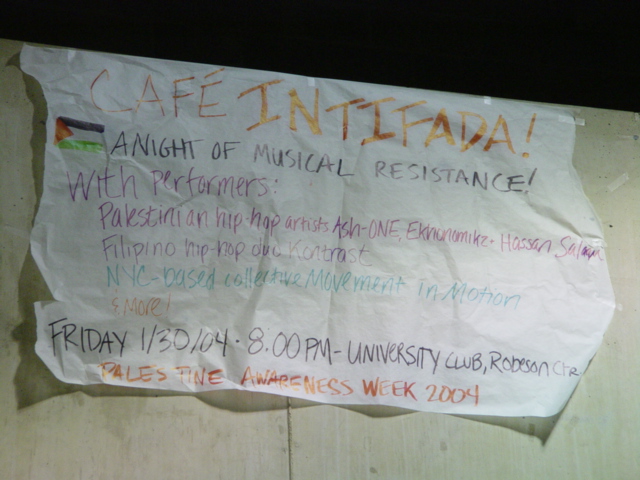 CAFÉ INTIFADA!
A NIGHT OF MUSICAL RESISTANCE!
With Performers:
Palestinian hip-hop artists Ash-ONE, Ekhonomikz + Hassan Salaam
Filipino hip-hop duo Kontrast
NYC-based collective Movement in Motion
& More!
FRIDAY 1/30/04 · 8:00 PM - UNIVERSITY CLUB, Robeson Ctr
PALESTINE AWARENESS WEEK 2004